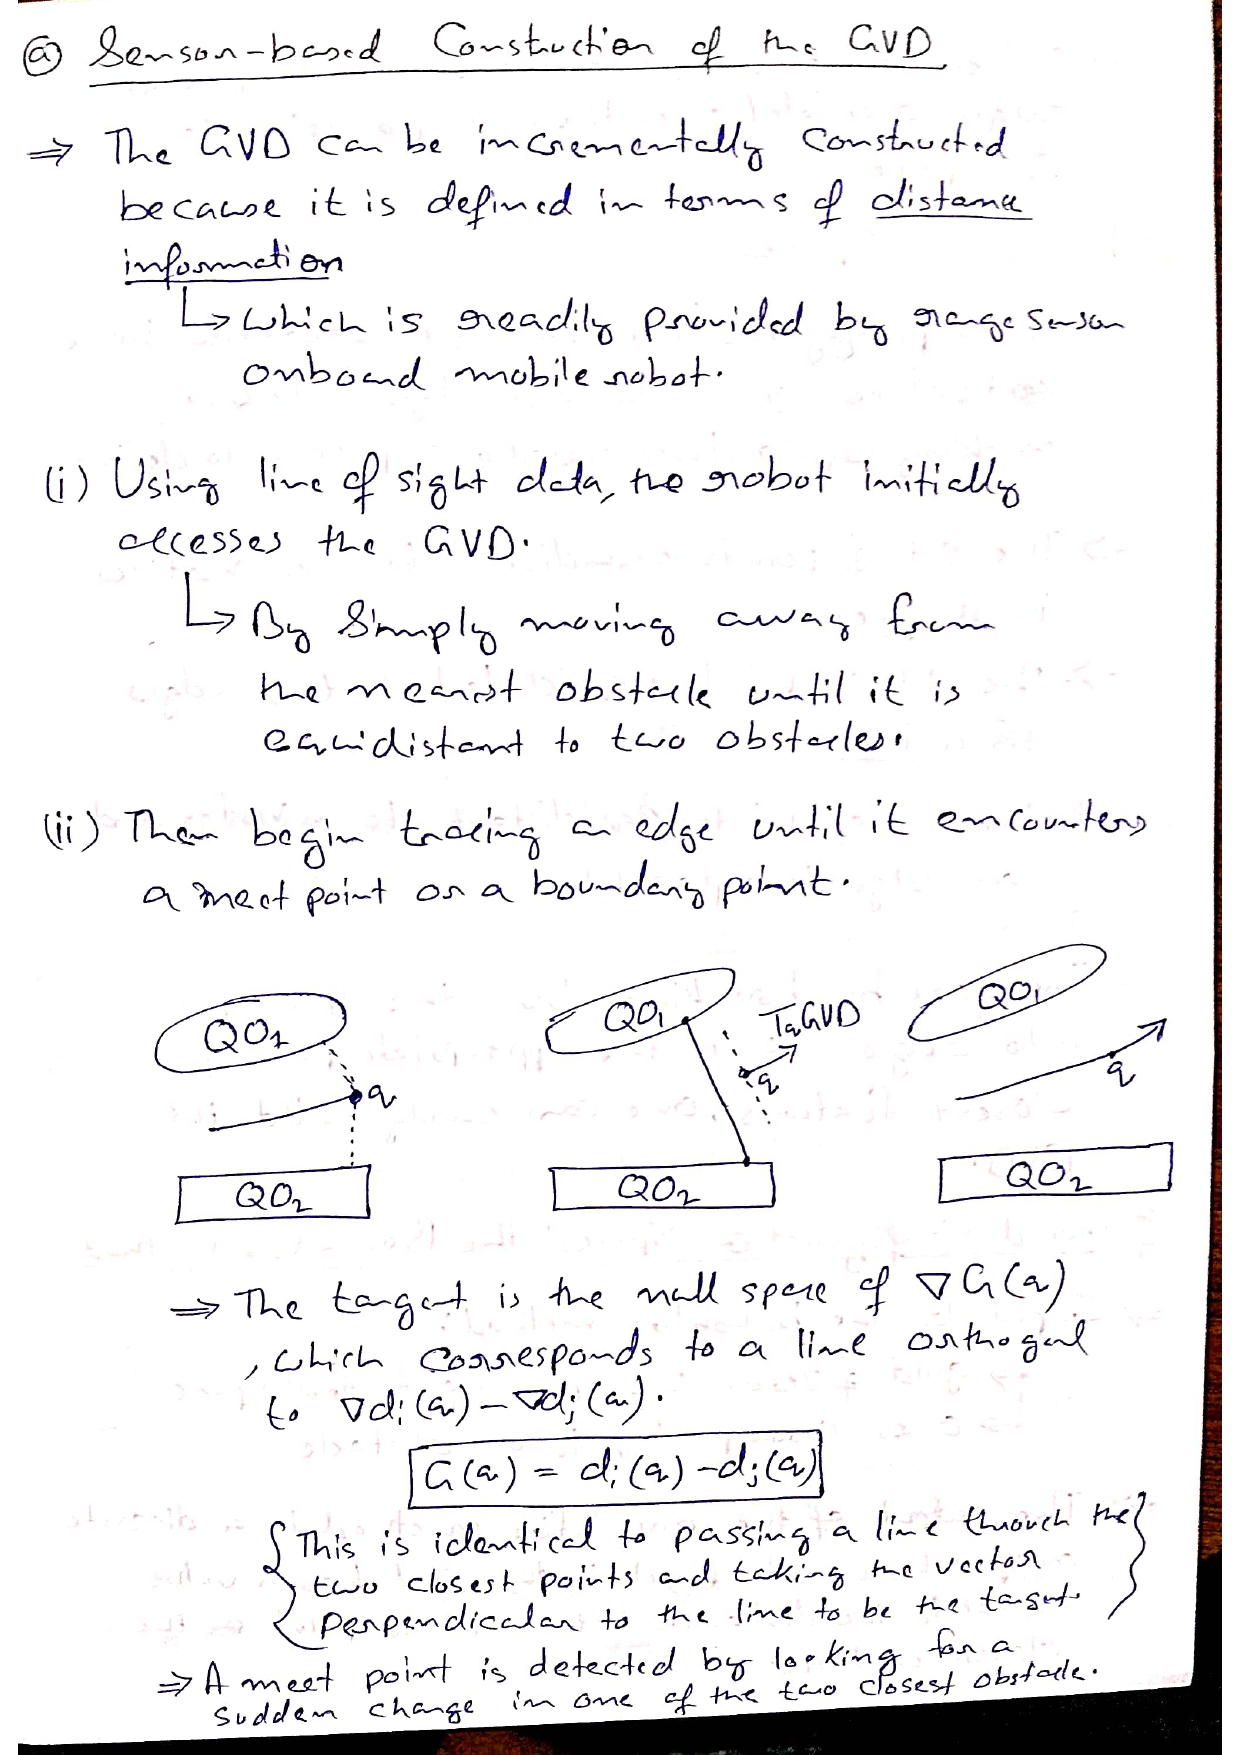 ⓐ Sensor-based Construction of the GVD
⇒ The GVD can be incrementally constructed
because it is defined in terms of distance
information
↳ which is readily provided by range sensor
onboard mobile robot.
(i) Using line of sight data, the robot initially
accesses the GVD.
↳ By Simply moving away from
the nearest obstacle until it is
equidistant to two obstacles.
(ii) Then begin tracing an edge until it encounters
a meet point or a boundary point.
QO₁ QO₁ TqGVD QO₁
q q q
QO₂ QO₂ QO₂
⇒ The tangent is the null space of ∇G(q)
, which corresponds to a line orthogonal
to ∇dᵢ(q) – ∇dⱼ(q).
G(q) = dᵢ(q) – dⱼ(q)
{ This is identical to passing a line through the }
two closest points and taking the vector
perpendicular to the line to be the tangent.
⇒ A meet point is detected by looking for a
sudden change in one of the two closest obstacle.